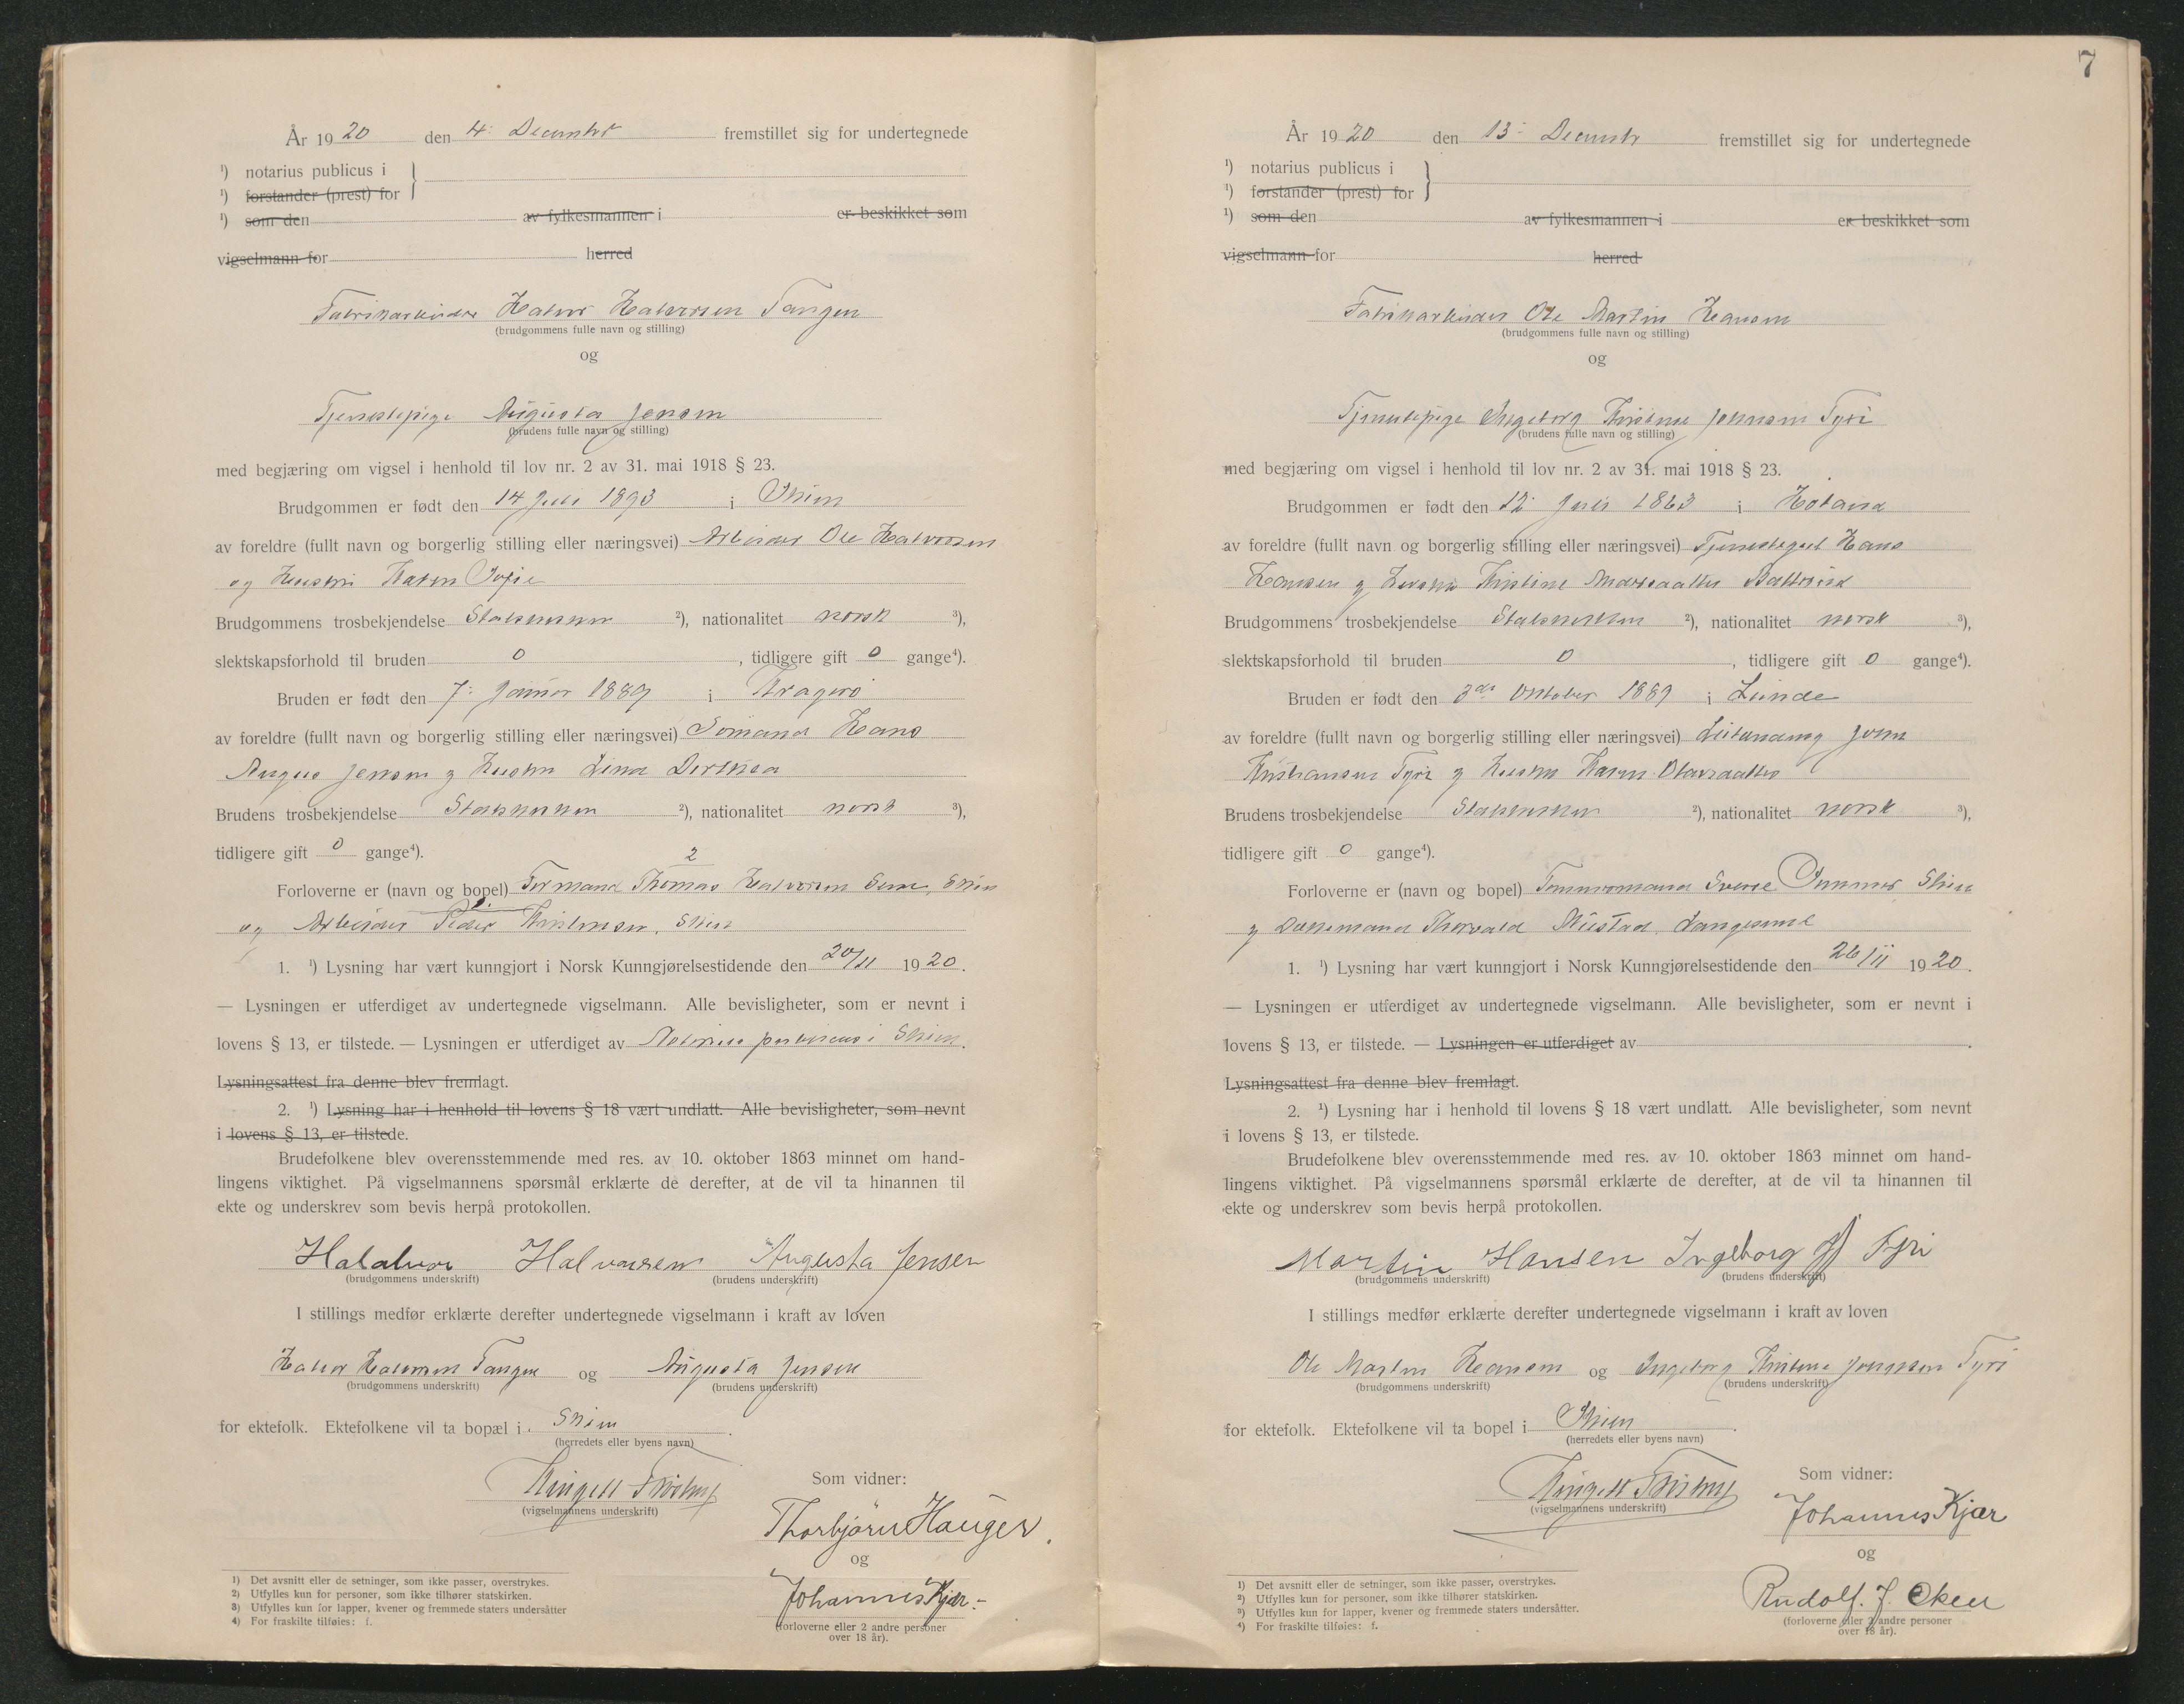 År 1920 den 4. December fremstillet sig for undertegnede
¹) notarius publicus i
¹) forstander (prest) for
¹) som den av fylkesmannen i er beskikket som
vigselmann for herred
Fabrikarbeider Halvor Halvorsen Tangen
(brudgommens fulle navn og stilling)
og
Tjenestepige Augusta Jensen
(brudens fulle navn og stilling)
med begjæring om vigsel i henhold til lov nr. 2 av 31. mai 1918 § 23.
Brudgommen er født den 14 Juli 1893 i Skien
av foreldre (fullt navn og borgerlig stilling eller næringsvei) Arbeider Ole Halvorsen
og Hustru Karen Sofie
Brudgommens trosbekjendelse Statskirken ²), nationalitet norsk ³),
slektskapsforhold til bruden 0, tidligere gift 0 gange⁴).
Bruden er født den 7. Januar 1889 i Kragerö
av foreldre (fullt navn og borgerlig stilling eller næringsvei) Sömand Hans
August Jensen og Hustru Lina Dorthea
Brudens trosbekjendelse Statskirken ²), nationalitet norsk ³),
tidligere gift 0 gange⁴).
2
Forloverne er (navn og bopel) Formand Thomas Halvorsen Sem, Skien
1.
og Arbeider Peder Kristensen, Skien
1. ¹) Lysning har vært kunngjort i Norsk Kunngjørelsestidende den 20/11 1920.
— Lysningen er utferdiget av undertegnede vigselmann. Alle bevisligheter, som er nevnt i
lovens § 13, er tilstede. — Lysningen er utferdiget av Notarius publicus i Skien.
Lysningsattest fra denne blev fremlagt.
2. ¹) Lysning har i henhold til lovens § 18 vært undlatt. Alle bevisligheter, som nevnt
i lovens § 13, er tilstede.
Brudefolkene blev overensstemmende med res. av 10. oktober 1863 minnet om hand-
lingens viktighet. På vigselmannens spørsmål erklærte de derefter, at de vil ta hinannen til
ekte og underskrev som bevis herpå protokollen.
Halalvor Halvorsen Augusta Jensen
(brudgommens underskrift) (brudens underskrift)
I stillings medfør erklærte derefter undertegnede vigselmann i kraft av loven
Halvor Halvorsen Tangen og Augusta Jensen
(brudgommens underskrift) (brudens underskrift)
for ektefolk. Ektefolkene vil ta bopæl i Skien.
(herredets eller byens navn)
Som vidner:
(vigselmannens underskrift)
Thorbjørn Hauger.
og
Johannes Kjær.-
(forloverne eller 2 andre personer
over 18 år).
¹) Det avsnitt eller de setninger, som ikke passer, overstrykes.
²) Utfylles kun for personer, som ikke tilhører statskirken.
³) Utfylles kun for lapper, kvener og fremmede staters undersåtter
⁴) For fraskilte tilføies: f.
7
År 1920 den 13. Decembr fremstillet sig for undertegnede
¹) notarius publicus i
¹) forstander (prest) for
¹) som den av fylkesmannen i er beskikket som
vigselmann for herred
Fabrikarbeider Ole Martin Hansen
(brudgommens fulle navn og stilling)
og
Tjenestepige Ingeborg Kristine Jonnsen Tyri
(brudens fulle navn og stilling)
med begjæring om vigsel i henhold til lov nr. 2 av 31. mai 1918 § 23.
Brudgommen er født den 12. Juli 1863 i Höland
av foreldre (fullt navn og borgerlig stilling eller næringsvei) Tjenestegut Hans
Hansen og Hustru Kristine Andreasdatter
Brudgommens trosbekjendelse Statskirken ²), nationalitet norsk ³),
slektskapsforhold til bruden 0, tidligere gift 0 gange⁴).
Bruden er født den 3de Oktober 1889 i Lunde
av foreldre (fullt navn og borgerlig stilling eller næringsvei) John
Kristiansen Tyri og Hustru Karen Olavsdatter
Brudens trosbekjendelse Statskirken ²), nationalitet norsk ³),
tidligere gift 0 gange⁴).
Forloverne er (navn og bopel) Tömmermand Sverre Skien
og Thorvald Langesund
1. ¹) Lysning har vært kunngjort i Norsk Kunngjørelsestidende den 26/11 1920.
— Lysningen er utferdiget av undertegnede vigselmann. Alle bevisligheter, som er nevnt i
lovens § 13, er tilstede. — Lysningen er utferdiget av.
Lysningsattest fra denne blev fremlagt.
2. ¹) Lysning har i henhold til lovens § 18 vært undlatt. Alle bevisligheter, som nevnt
i lovens § 13, er tilstede.
Brudefolkene blev overensstemmende med res. av 10. oktober 1863 minnet om hand-
lingens viktighet. På vigselmannens spørsmål erklærte de derefter, at de vil ta hinannen til
ekte og underskrev som bevis herpå protokollen.
Martin Hansen Ingeborg J Tyri
(brudgommens underskrift) (brudens underskrift)
I stillings medfør erklærte derefter undertegnede vigselmann i kraft av loven
Ole Martin Hansen og Ingeborg Kristine Jonnsen Tyri
(brudgommens underskrift) (brudens underskrift)
for ektefolk. Ektefolkene vil ta bopel i Skien.
(herredets eller byens navn)
Som vidner:
(vigselmannens underskrift)
Johannes Kjær
og
Rudolf. J. Oken
(forloverne eller 2 andre personer
over 18 år).
¹) Det avsnitt eller de setninger, som ikke passer, overstrykes.
²) Utfylles kun for personer, som ikke tilhører statskirken.
³) Utfylles kun for lapper, kvener og fremmede staters undersåtter.
⁴) For fraskilte tilføies: f.